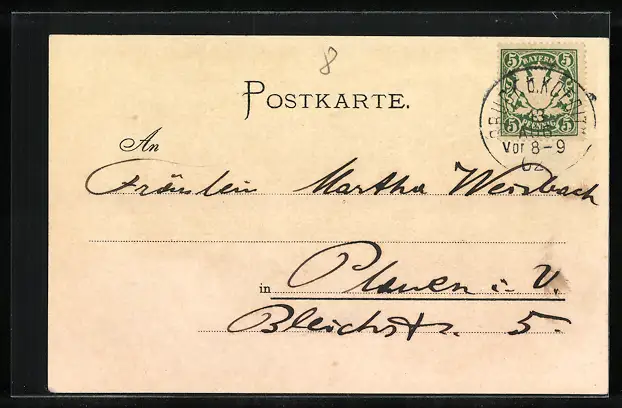 8
POSTKARTE.
BAYERN
5 5
5 PFENNIG 5
b. K
13
Vor 8-9
02
An
Fräulein Martha Weisbach
in Plauen i. V.
Bleichstr. 5.